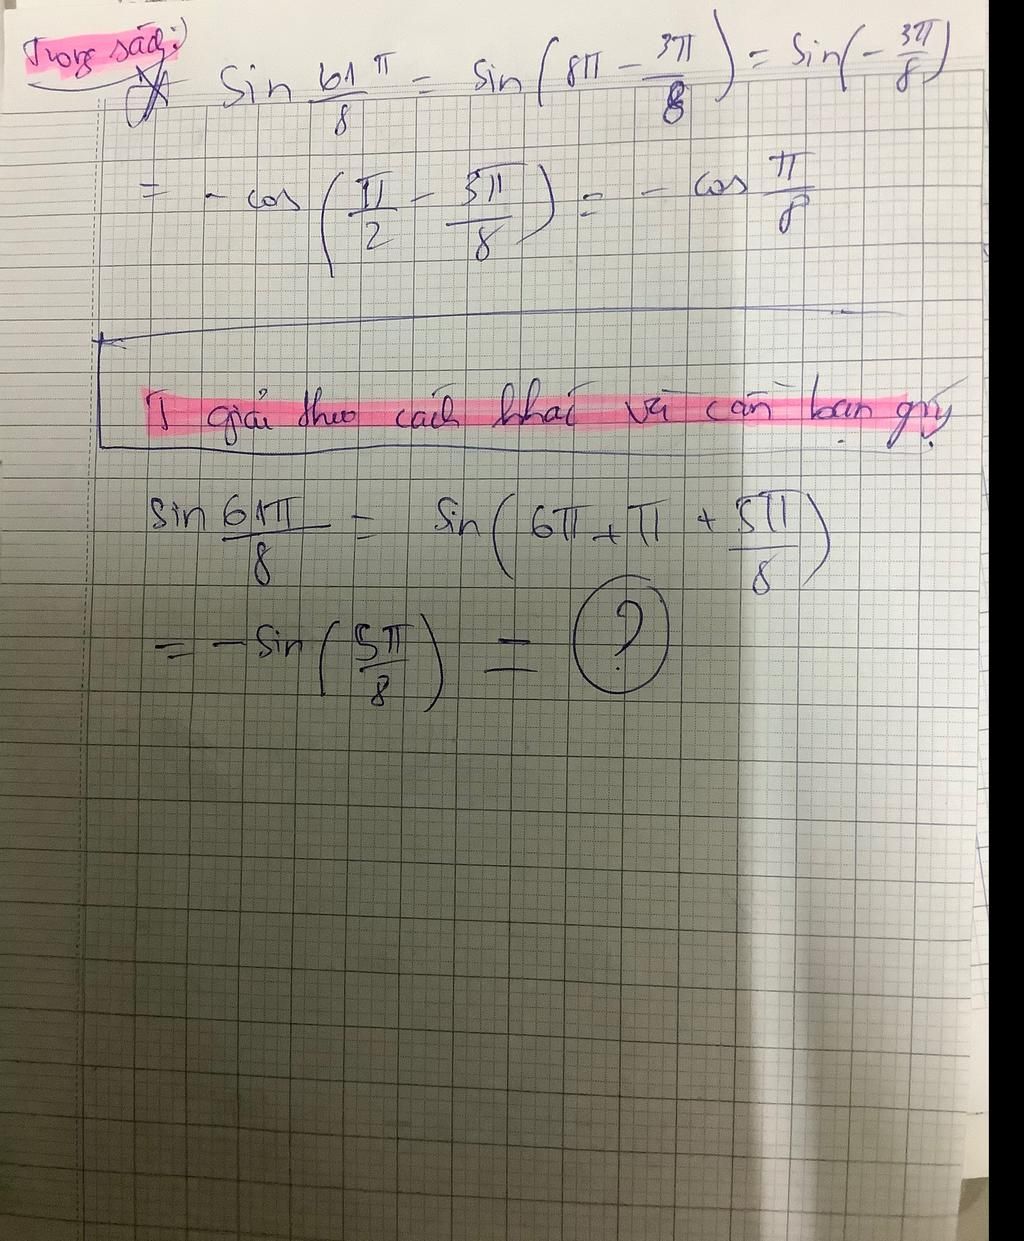 Trong sách:
sin 61π/8 = sin(8π − 3π/8) = sin(− 3π/8)
= − cos(π/2 − 3π/8) = − cos π/8
T giải theo cách khác và cần bạn góp ý
sin 61π/8 = sin(6π + π + 5π/8)
= − sin(5π/8) = ?